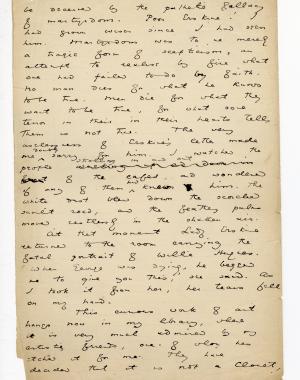 be deceived by the pathetic fallacy
of martyrdom. Poor Erskine! I
had grown wiser since I had seen
him. Martyrdom was to me merely
a tragic form of scepticism, an
attempt to realise by fire what
one had failed to do by faith.
No man dies for what he knows
to be true. Men die for what they
want to be true, for what some
terror in their hearts tells
them is not true. The very
uselessness of Erskine's letter made
me doubly sorry for him. I watched the
people strolling in and out
of the cafés, and wondered
if any of them had known him. The
white dust blew down the scorched
sunlit road, and the feathery palms
moved restlessly in the shaken air.
At that moment Lady Erskine
returned to the room carrying the
fatal portrait of Willie Hughes.
When George was dying, he begged
me to give you this, she said. As
I took it from her, her tears fell
on my hand.
This curious work of art
hangs now in my library, where
it is very much admired by my
artistic friends, one of whom has
etched it for me. They have
decided that it is not a Clouet,